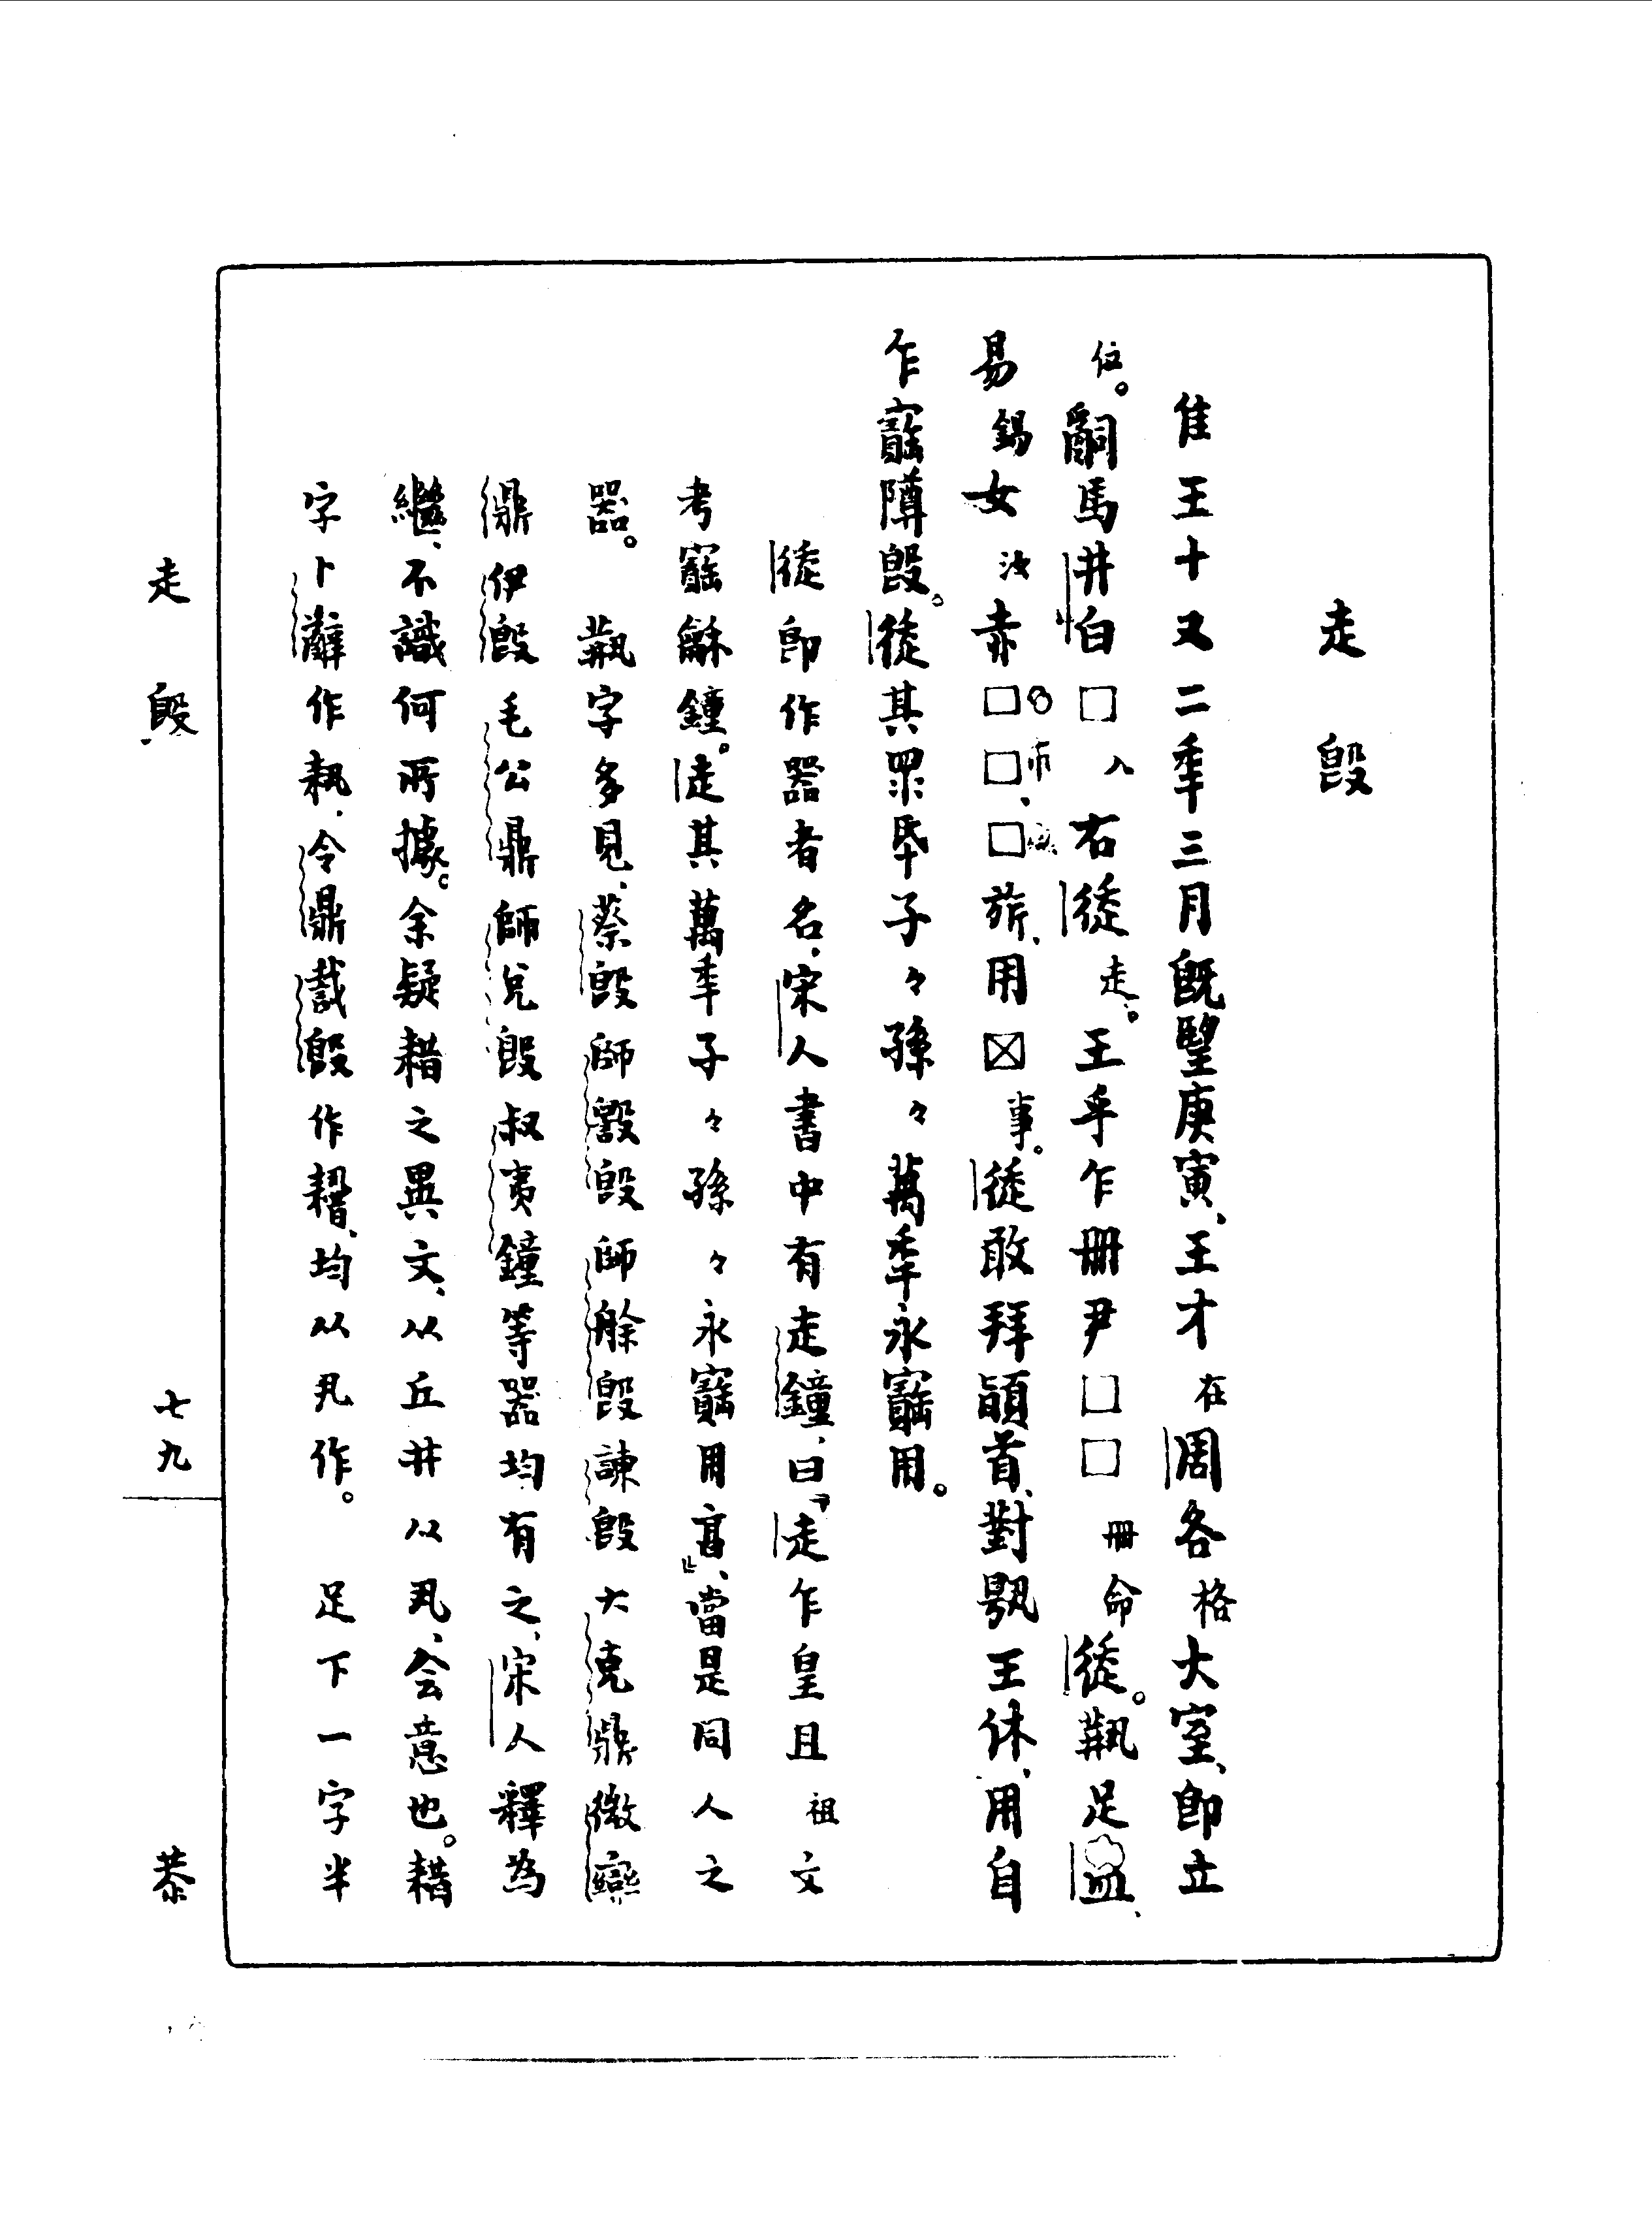 走𣪘
隹王十又二年三月旣朢庚寅、王才在周各格大室、卽立
位。𤔲馬井白□入右徒走。王乎乍册尹□□册命徒。𩏑足
易錫女汝赤□□、□旂、用☒事。徒敢拜𩒨首、對䚄王休、用自
乍寶𨻰𣪘。徒其眔氒子々孫々萬年永寶用。
徒卽作器者名、宋人書中有走鐘、曰『走乍皇且祖文
考寶龢鐘。走其萬年子々孫々永寶用亯』、當是同人之
器。𩏑字多見、蔡𣪘師𣪘師艅𣪘諫𣪘大克鼎微䜌
鼎伊𣪘毛公鼎師兌𣪘叔夷鐘等器均有之、宋人釋為
繼、不識何所據。余疑耤之異文、从丘井从丮、会意也。耤
字卜辭作、令鼎𣪘作、均从丮作。足下一字半
走𣪘
七九